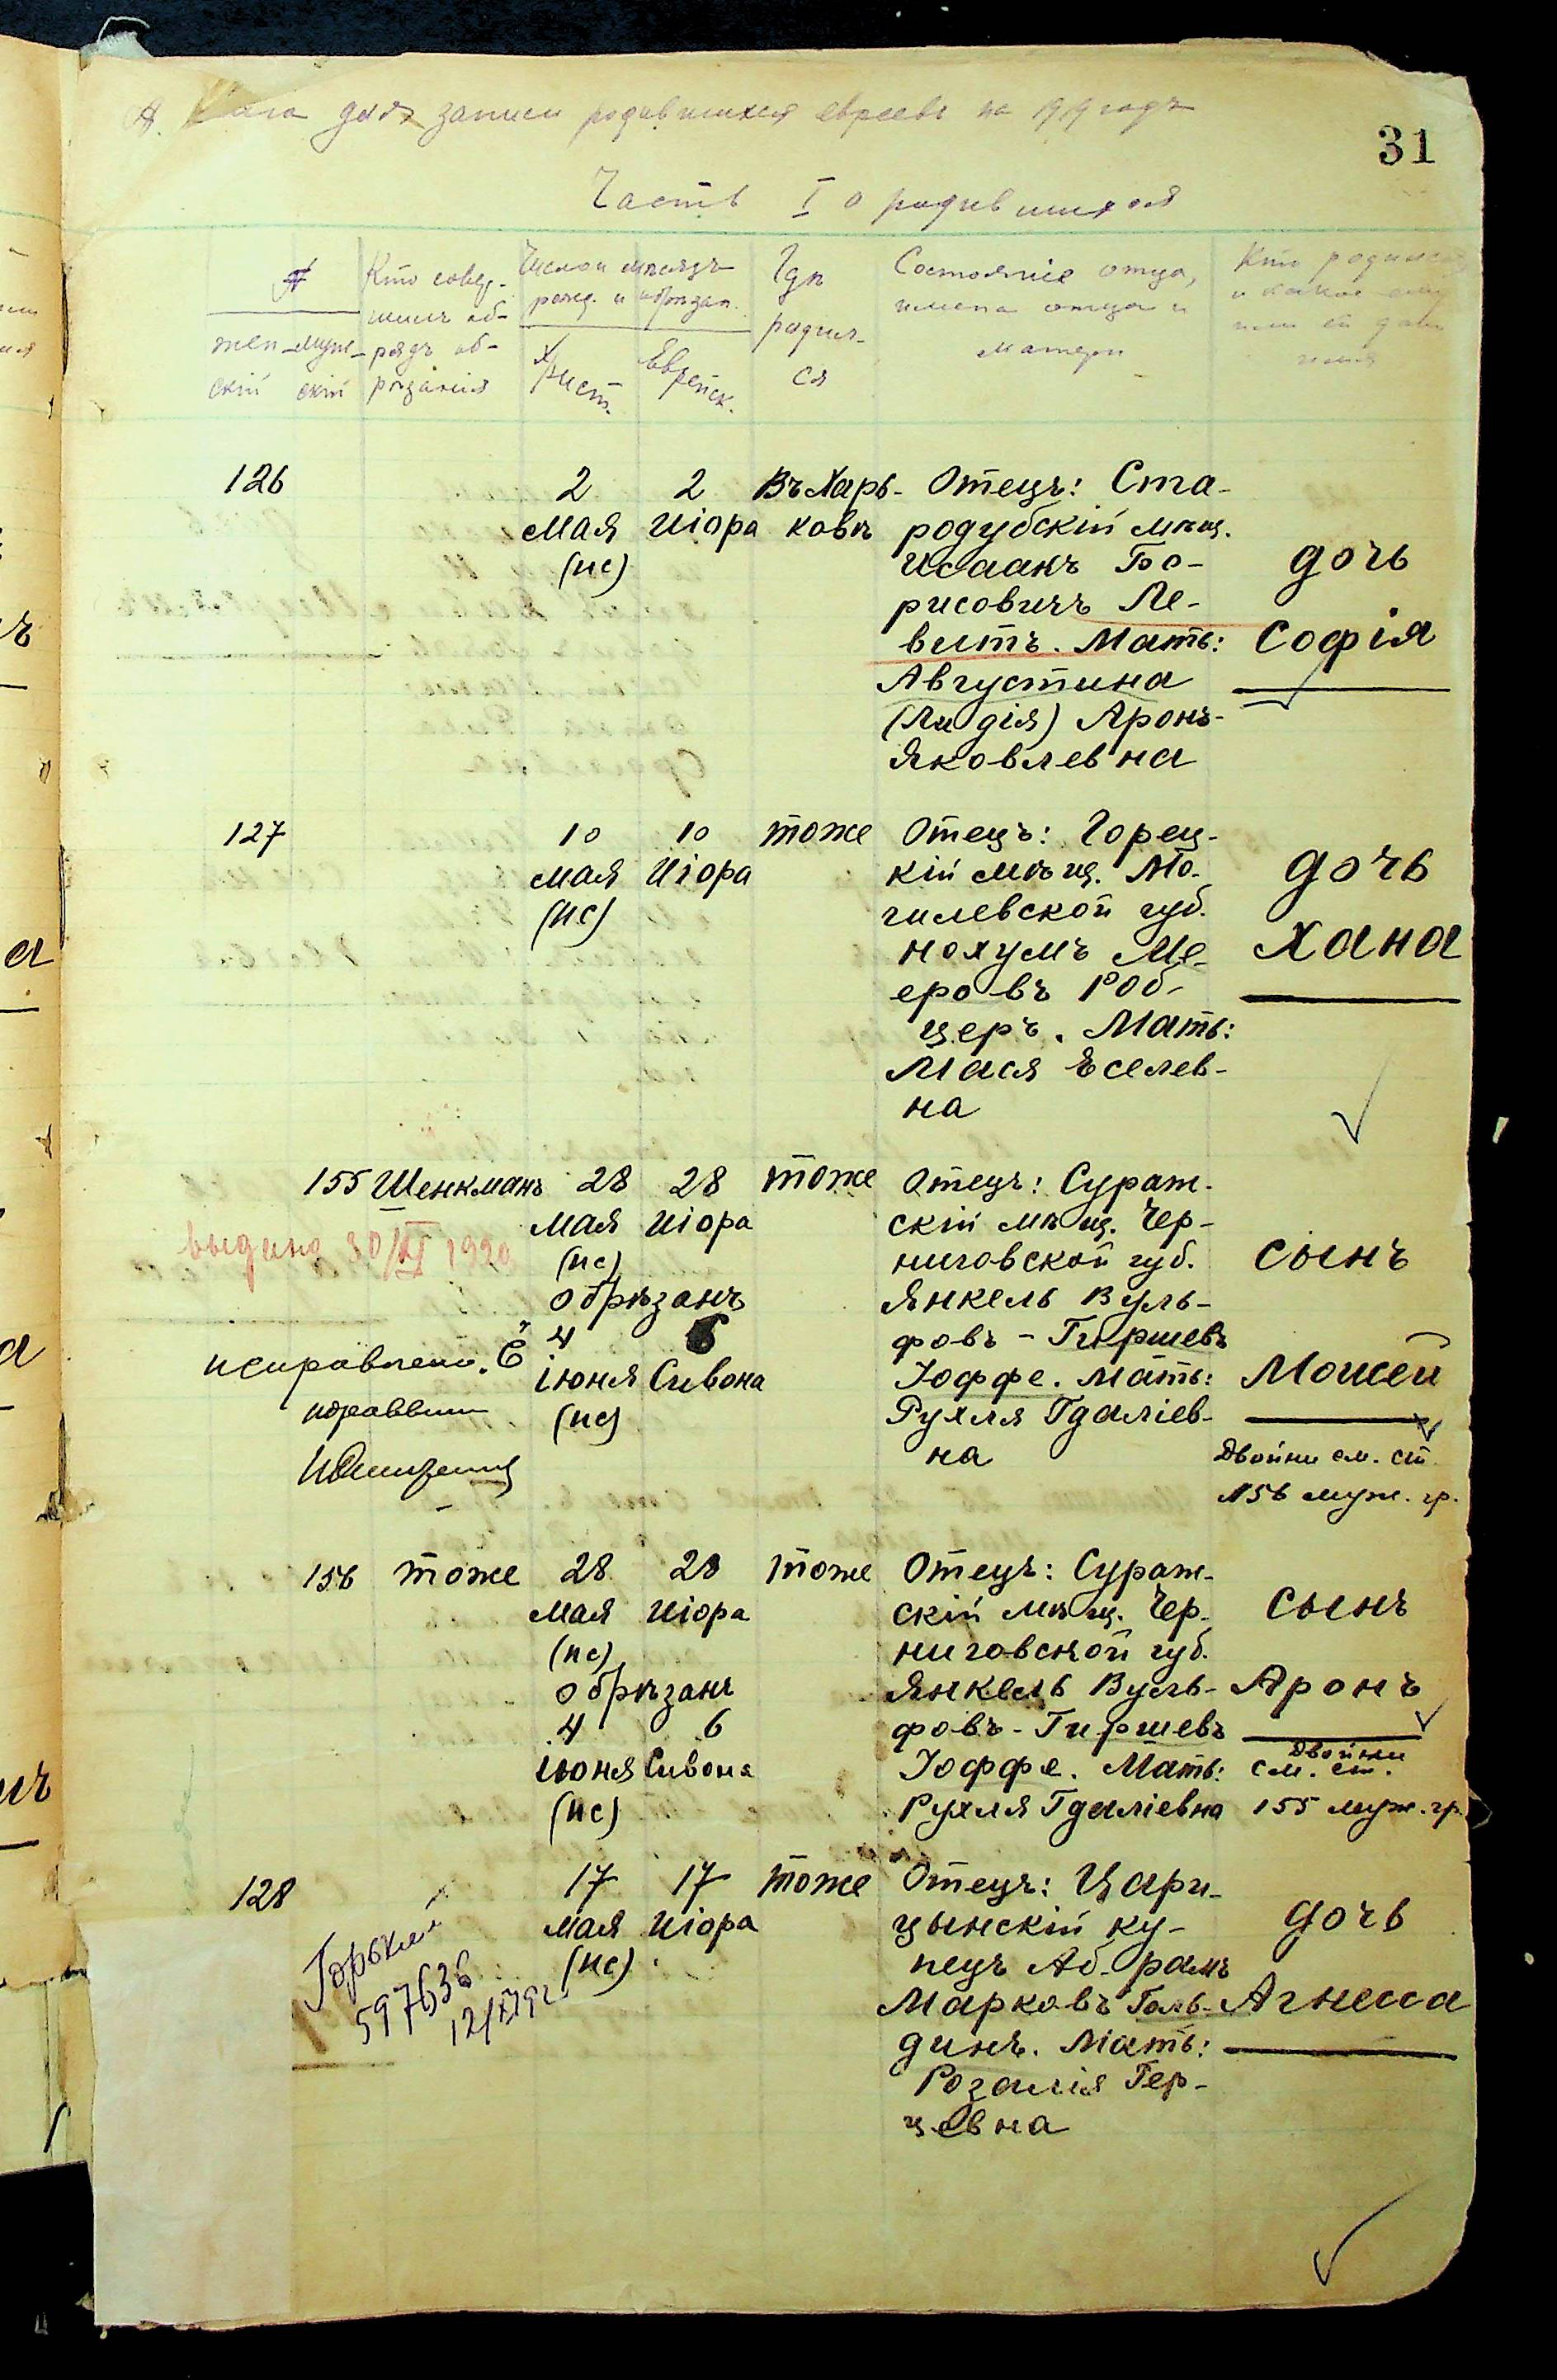 для записи родившихся евреевъ на 1919 годъ
31
Часть I о родившихся
№
жен-скій
муже-скій
Кто совер-
шилъ об-
рядъ об-
рѣзанія
Число и мѣсяцъ
рожд. и обрѣзан.
Христ.
Еврейск.
Гдѣ
родил-
ся
Состояніе отца,
имена отца и
матери
Кто родился
и какое ему
или ей дано
имя
126
2
Мая
(нс)
2
Иіора
Въ Харь-
ковѣ
Отецъ: Ста-
родубскій мѣщ.
Исаакъ Бо-
рисовичъ Ле-
витъ. Мать:
Августина
(Лидія) Аронъ-
Яковлевна
дочь
Софія
127
10
мая
(нс)
10
Иіора
тоже
Отецъ: Горец-
кій мѣщ. Мо-
гилевской губ.
Нохумъ Ме-
еровъ Роб-
церъ. Мать:
Мася Еселев-
на
дочь
Хана
155
Шенкманъ
28
мая
(нс)
28
Иіора
обрѣзанъ
4
іюня
(нс)
6
Сивона
тоже
Отецъ: Сураж-
скій мѣщ. Чер-
ниговской губ.
Янкель Вуль-
фовъ-Гиршевъ
Іоффе. Мать:
Рухля Гдаліев-
на
сынъ
Мошей
Двойни см. ст.
156 муж. гр.
выдано 30/XI 1920
исправлено "6"
156
тоже
28
мая
(нс)
28
Иіора
обрѣзанъ
4
іюня
(нс)
6
Сивона
тоже
Отецъ: Сураж-
скій мѣщ. Чер-
ниговской губ.
Янкель Вуль-
фовъ-Гиршевъ
Іоффе. Мать:
Рухля Гдаліевна
сынъ
Аронъ
Двойни
см. ст.
155 муж. гр.
128
17
мая
(нс)
17
Иіора
тоже
Отецъ: Цари-
цынскій ку-
пецъ Аб-рамъ
Марковъ Голь-
динъ. Мать:
Розалія Гер-
цевна
дочь
Агнесса
Горький
597636